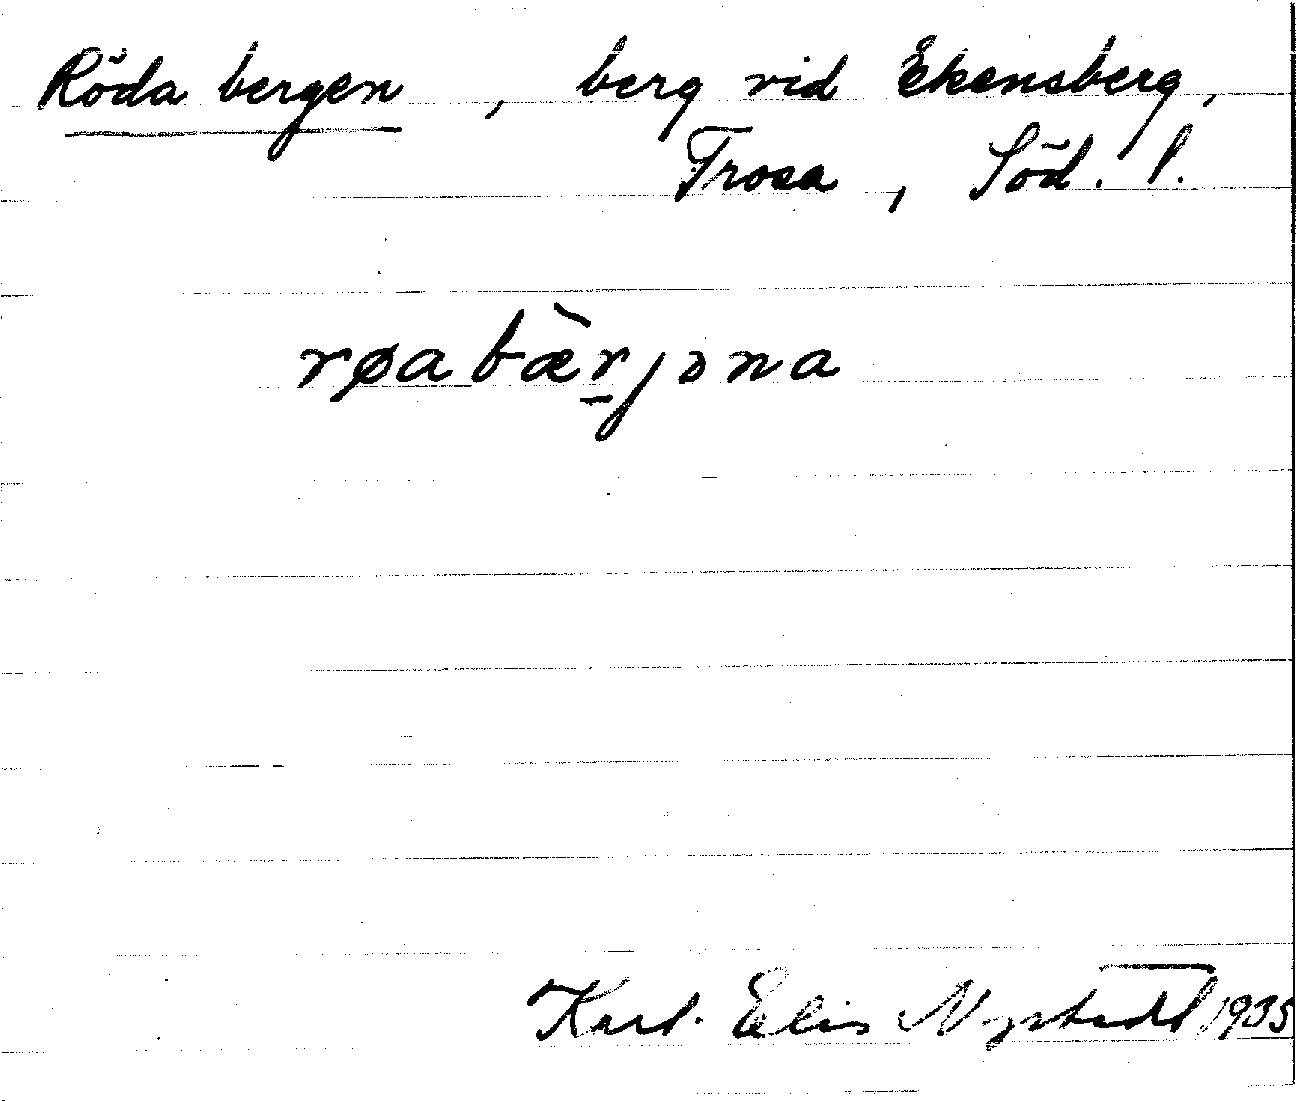 Röda bergen, berg vid Ekensberg,
Trosa, Söd. l.
røabæ̀rjəna
Karl-Elis Nystedt 1935